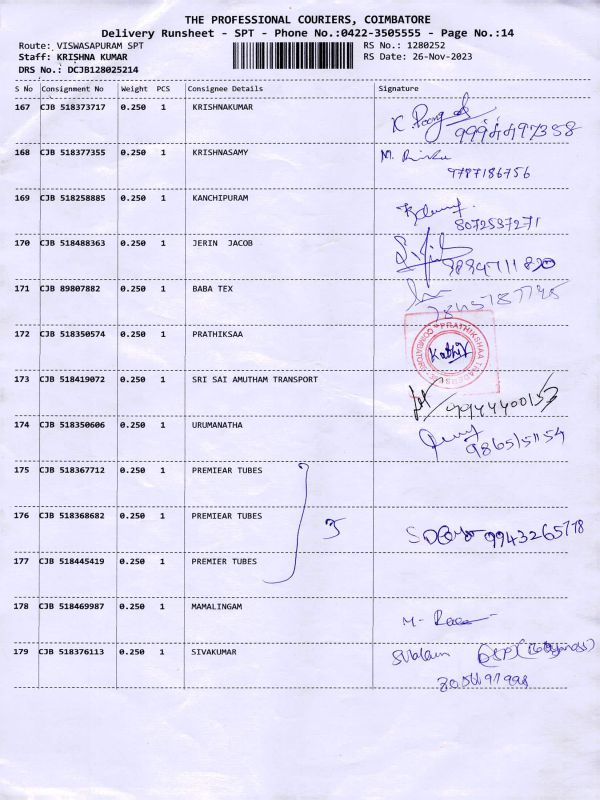 THE PROFESSIONAL COURIERS, COIMBATORE
Delivery Runsheet - SPT - Phone No.:0422-3505555 - Page No.:14
Route: VISWASAPURAM SPT
RS No.: 1280252
Staff: KRISHNA KUMAR
RS Date: 26-Nov-2023
DRS No.: DCJB128025214
S No Consignment No Weight PCS Consignee Details Signature
167 CJB 518373717 0.250 1 KRISHNAKUMAR
K.
168 CJB 518377355 0.250 1 KRISHNASAMY M.
9787186756
169 CJB 518258885 0.250 1 KANCHIPURAM
8072537271
170 CJB 518488363 0.250 1 JERIN JACOB
171 CJB 89807882 0.250 1 BABA TEX
172 CJB 518350574 0.250 1 PRATHIKSAA
PRATHIKSHAA TRADERS
Kathir
173 CJB 518419072 0.250 1 SRI SAI AMUTHAM TRANSPORT
174 CJB 518350606 0.250 1 URUMANATHA
175 CJB 518367712 0.250 1 PREMIEAR TUBES
176 CJB 518368682 0.250 1 PREMIEAR TUBES
3 9943265778
177 CJB 518445419 0.250 1 PREMIER TUBES
178 CJB 518469987 0.250 1 MAMALINGAM
M-
179 CJB 518376113 0.250 1 SIVAKUMAR